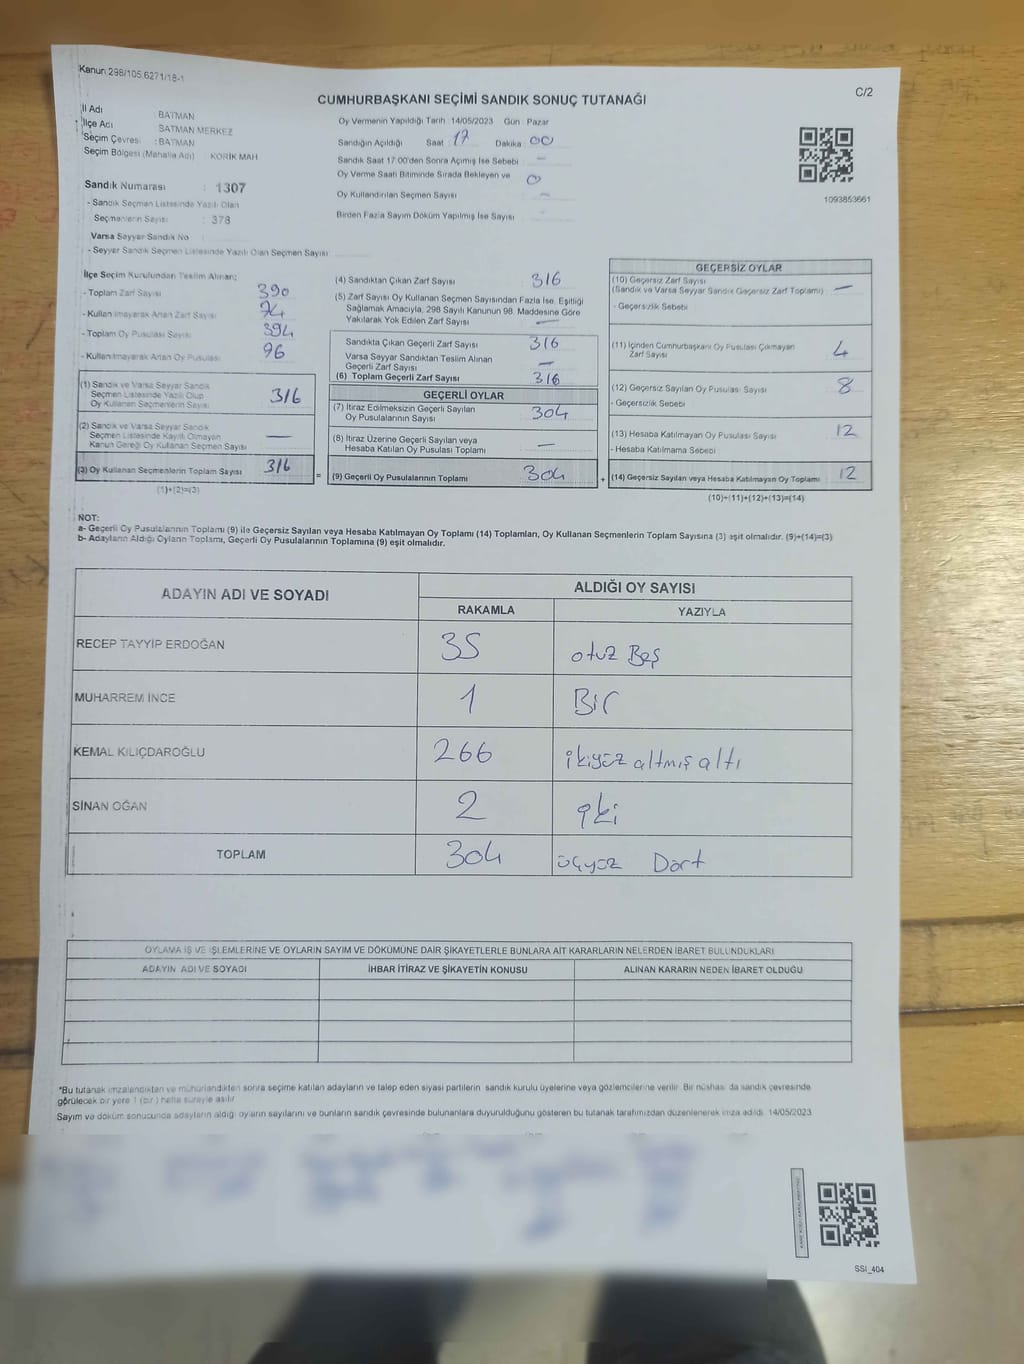 Kanun 298/105.6271/18-1
C/2
CUMHURBAŞKANI SEÇİMİ SANDIK SONUÇ TUTANAĞI
İl Adı BATMAN
İlçe Adı BATMAN MERKEZ
Seçim Çevresi : BATMAN
Seçim Bölgesi (Mahalle Adı) KORİK MAH
Sandık Numarası : 1307
- Sandık Seçmen Listesinde Yazılı Olan
Seçmenlerin Sayısı : 378
Varsa Seyyar Sandık No
- Seyyar Sandık Seçmen Listesinde Yazılı Olan Seçmen Sayısı
Oy Vermenin Yapıldığı Tarih :14/05/2023 Gün : Pazar
Sandığın Açıldığı Saat : 17 Dakika : 00
Sandık Saat 17:00'den Sonra Açılmış İse Sebebi –
Oy Verme Saati Bitiminde Sırada Bekleyen ve 0
Oy Kullandırılan Seçmen Sayısı –
Birden Fazla Sayım Döküm Yapılmış İse Sayısı
1093853661
İlçe Seçim Kurulundan Teslim Alınan;
- Toplam Zarf Sayısı 390
- Kullanılmayarak Artan Zarf Sayısı 74
- Toplam Oy Pusulası Sayısı 394
- Kullanılmayarak Artan Oy Pusulası 96
(1) Sandık ve Varsa Seyyar Sandık
Seçmen Listesinde Yazılı Olup
Oy Kullanan Seçmenlerin Sayısı 316
(2) Sandık ve Varsa Seyyar Sandık
Seçmen Listesinde Kayıtlı Olmayan
Kanun Gereği Oy Kullanan Seçmen Sayısı —
(3) Oy Kullanan Seçmenlerin Toplam Sayısı 316
(1)+(2)=(3)
=
(4) Sandıktan Çıkan Zarf Sayısı 316
(5) Zarf Sayısı Oy Kullanan Seçmen Sayısından Fazla İse, Eşitliği
Sağlamak Amacıyla, 298 Sayılı Kanunun 98. Maddesine Göre
Yakılarak Yok Edilen Zarf Sayısı —
Sandıkta Çıkan Geçerli Zarf Sayısı 316
Varsa Seyyar Sandıktan Teslim Alınan
Geçerli Zarf Sayısı —
(6) Toplam Geçerli Zarf Sayısı 316
GEÇERLİ OYLAR
(7) İtiraz Edilmeksizin Geçerli Sayılan
Oy Pusulalarının Sayısı 304
(8) İtiraz Üzerine Geçerli Sayılan veya
Hesaba Katılan Oy Pusulası Toplamı —
(9) Geçerli Oy Pusulalarının Toplamı 304
+
GEÇERSİZ OYLAR
(10) Geçersiz Zarf Sayısı
(Sandık ve Varsa Seyyar Sandık Geçersiz Zarf Toplamı) —
- Geçersizlik Sebebi
(11) İçinden Cumhurbaşkanı Oy Pusulası Çıkmayan
Zarf Sayısı 4
(12) Geçersiz Sayılan Oy Pusulası Sayısı 8
- Geçersizlik Sebebi
(13) Hesaba Katılmayan Oy Pusulası Sayısı 12
- Hesaba Katılmama Sebebi
(14) Geçersiz Sayılan veya Hesaba Katılmayan Oy Toplamı 12
(10)+(11)+(12)+(13)=(14)
NOT:
a- Geçerli Oy Pusulalarının Toplamı (9) ile Geçersiz Sayılan veya Hesaba Katılmayan Oy Toplamı (14) Toplamları, Oy Kullanan Seçmenlerin Toplam Sayısına (3) eşit olmalıdır. (9)+(14)=(3)
b- Adayların Aldığı Oyların Toplamı, Geçerli Oy Pusulalarının Toplamına (9) eşit olmalıdır.
ADAYIN ADI VE SOYADI ALDIĞI OY SAYISI
RAKAMLA YAZIYLA
RECEP TAYYİP ERDOĞAN 35 otuz Beş
MUHARREM İNCE 1 Bir
KEMAL KILIÇDAROĞLU 266 ikiyüz altmış altı
SİNAN OĞAN 2 iki
TOPLAM 304 üçyüz Dört
OYLAMA İŞ VE İŞLEMLERİNE VE OYLARIN SAYIM VE DÖKÜMÜNE DAİR ŞİKAYETLERLE BUNLARA AİT KARARLARIN NELERDEN İBARET BULUNDUKLARI
ADAYIN ADI VE SOYADI İHBAR İTİRAZ VE ŞİKAYETİN KONUSU ALINAN KARARIN NEDEN İBARET OLDUĞU
*Bu tutanak imzalandıktan ve mühürlandikten sonra seçime katılan adayların ve talep eden siyasi partilerin sandık kurulu üyelerine veya gözlemcilerine verilir. Bir nüshası da sandık çevresinde
görülecek bir yere 1 (bir) hafta süreyle asılır
Sayım ve döküm sonucunda adayların aldığı oyların sayılarını ve bunların sandık çevresinde bulunanlara duyurulduğunu gösteren bu tutanak tarafımızdan düzenlenerek imza edildi. 14/05/2023
SSI_404